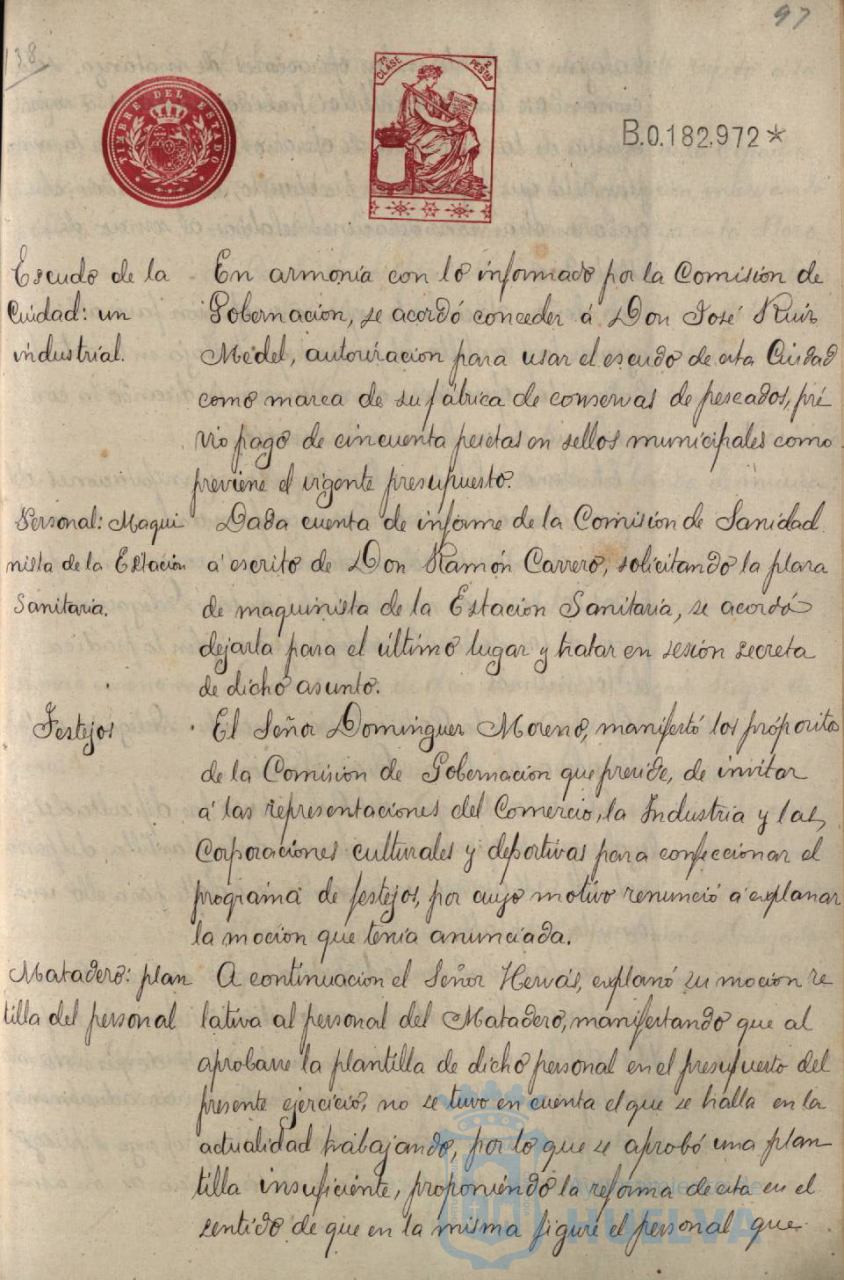 97
138
TIMBRE DEL ESTADO
7ª CLASE
PESTAS
B.0.182.972*
Escudo de la
Ciudad: un
industrial.
En armonía con lo informado por la Comisión de
Gobernación, se acordó conceder á Don José Ruiz
Medel, autorización para usar el escudo de esta Ciudad
como marca de su fábrica de conservas de pescados, pré
vio pago de cincuenta pesetas en sellos municipales como
previene el vigente presupuesto.
Personal: Maqui
nista de la Estación
Sanitaria.
Dada cuenta de informe de la Comisión de Sanidad
á escrito de Don Ramón Carrero, solicitando la plaza
de maquinista de la Estación Sanitaria, se acordó
dejarla para el último lugar y tratar en sesión secreta
de dicho asunto.
Festejos
El Señor Domínguez Moreno, manifestó los própositos
de la Comisión de Gobernación que preside, de invitar
á las representaciones del Comercio, la Industria y las
Corporaciones culturales y deportivas para confeccionar el
programa de festejos, por cuyo motivo renunció á explanar
la moción que tenía anunciada.
Matadero: plan
tilla del personal
A continuación el Señor Hervás, explanó su moción re
lativa al personal del Matadero, manifestando que al
aprobarse la plantilla de dicho personal en el presupuesto del
presente ejercicio, no se tuvo en cuenta el que se halla en la
actualidad trabajando, por lo que se aprobó una plan
tilla insuficiente, proponiendo la reforma de esta en el
sentido de que en la misma figure el personal que
Ayuntamiento de
HUELVA